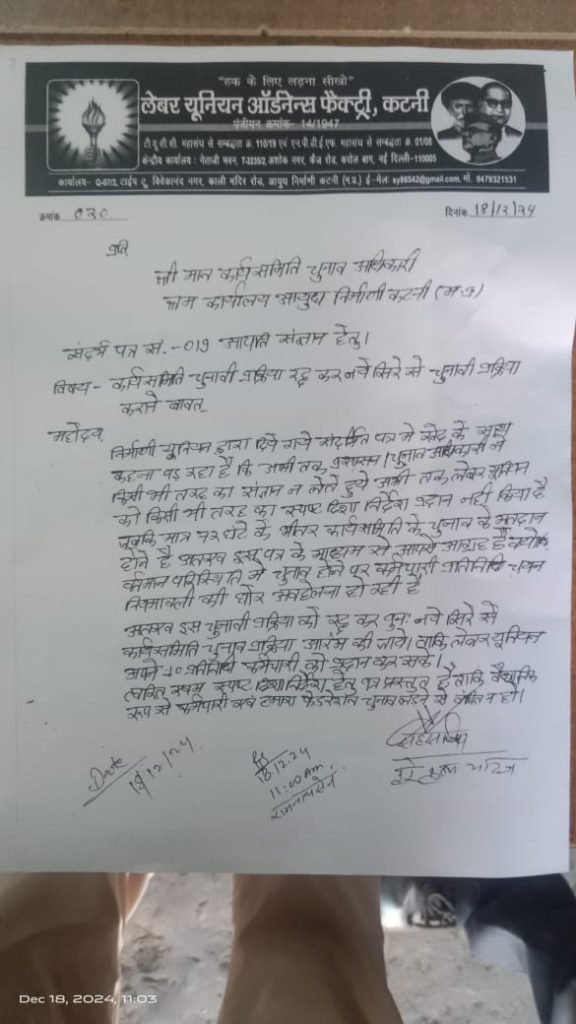 "हक के लिए लड़ना सीखो"
लेबर यूनियन ऑर्डनेन्स फैक्ट्री, कटनी
पंजीयन क्रमांक- 14/1947
टी.यू.सी.सी. महासंघ से सम्बद्धता क्र. 110/19 एवं एन.पी.डी.ई.एफ. महासंघ से सम्बद्धता क्र. 01/08
केन्द्रीय कार्यालय : नेताजी भवन, T-2235/2, अशोक नगर, फैज रोड, करोल बाग, नई दिल्ली-110005
कार्यालय- Q-37/3, टाईप टू, विवेकानंद नगर, काली मंदिर रोड, आयुध निर्माणी कटनी (म.प्र.) ई-मेल: sy86542@gmail.com, मो. 9479321531
क्रमांक 020 दिनांक 18/12/24
प्रति
श्री मान कार्यसमिति चुनाव अधिकारी
श्रम कार्यालय आयुध निर्माणी कटनी (म.प्र)
संदर्भ पत्र सं.-019 आपत्ति संज्ञान हेतु।
विषय- कार्यसमिति चुनावी प्रक्रिया रद्द कर नये सिरे से चुनावी प्रक्रिया
कराने बावत्
महोदय,
निर्माणी यूनियन द्वारा दिये गये संदर्भित पत्र मे खेद के साथ
कहना पड़ रहा है कि अभी तक प्रशासन/चुनाव अधिकारी ने
किसी भी तरह का संज्ञान न लेते हुये अभी तक लेबर यूनियन
को किसी भी तरह का स्पष्ट दिशा निर्देश प्रदान नही किया है
जबकि मात्र घंटे के भीतर कार्यसमिति के चुनाव के मतदान
होने है अतएव इस पत्र के माध्यम से आपसे आग्रह है क्योंकि
वर्तमान परिस्थिति मे चुनाव होने पर कर्मचारी प्रतिनिधि चयन
नियमावली की घोर अवहेलना हो रही है
अतएव इस चुनावी प्रक्रिया को रद्द कर पुनः नये सिरे से
कार्यसमिति चुनाव प्रक्रिया आरंभ की जाये। ताकि लेबर यूनियन
अपने 10 प्रतिनिधि कर्मचारी को प्रदान कर सके।
त्वरित स्पष्ट दिशा निर्देश हेतु पत्र प्रस्तुत है ताकि वैधानिक
रूप से कर्मचारी एवं हमारा फेडरेशन चुनाव लड़ने से वंचित न हो।
Date
18/12/24
18.12.24
11:00 Am
Dec 18, 2024, 11:03